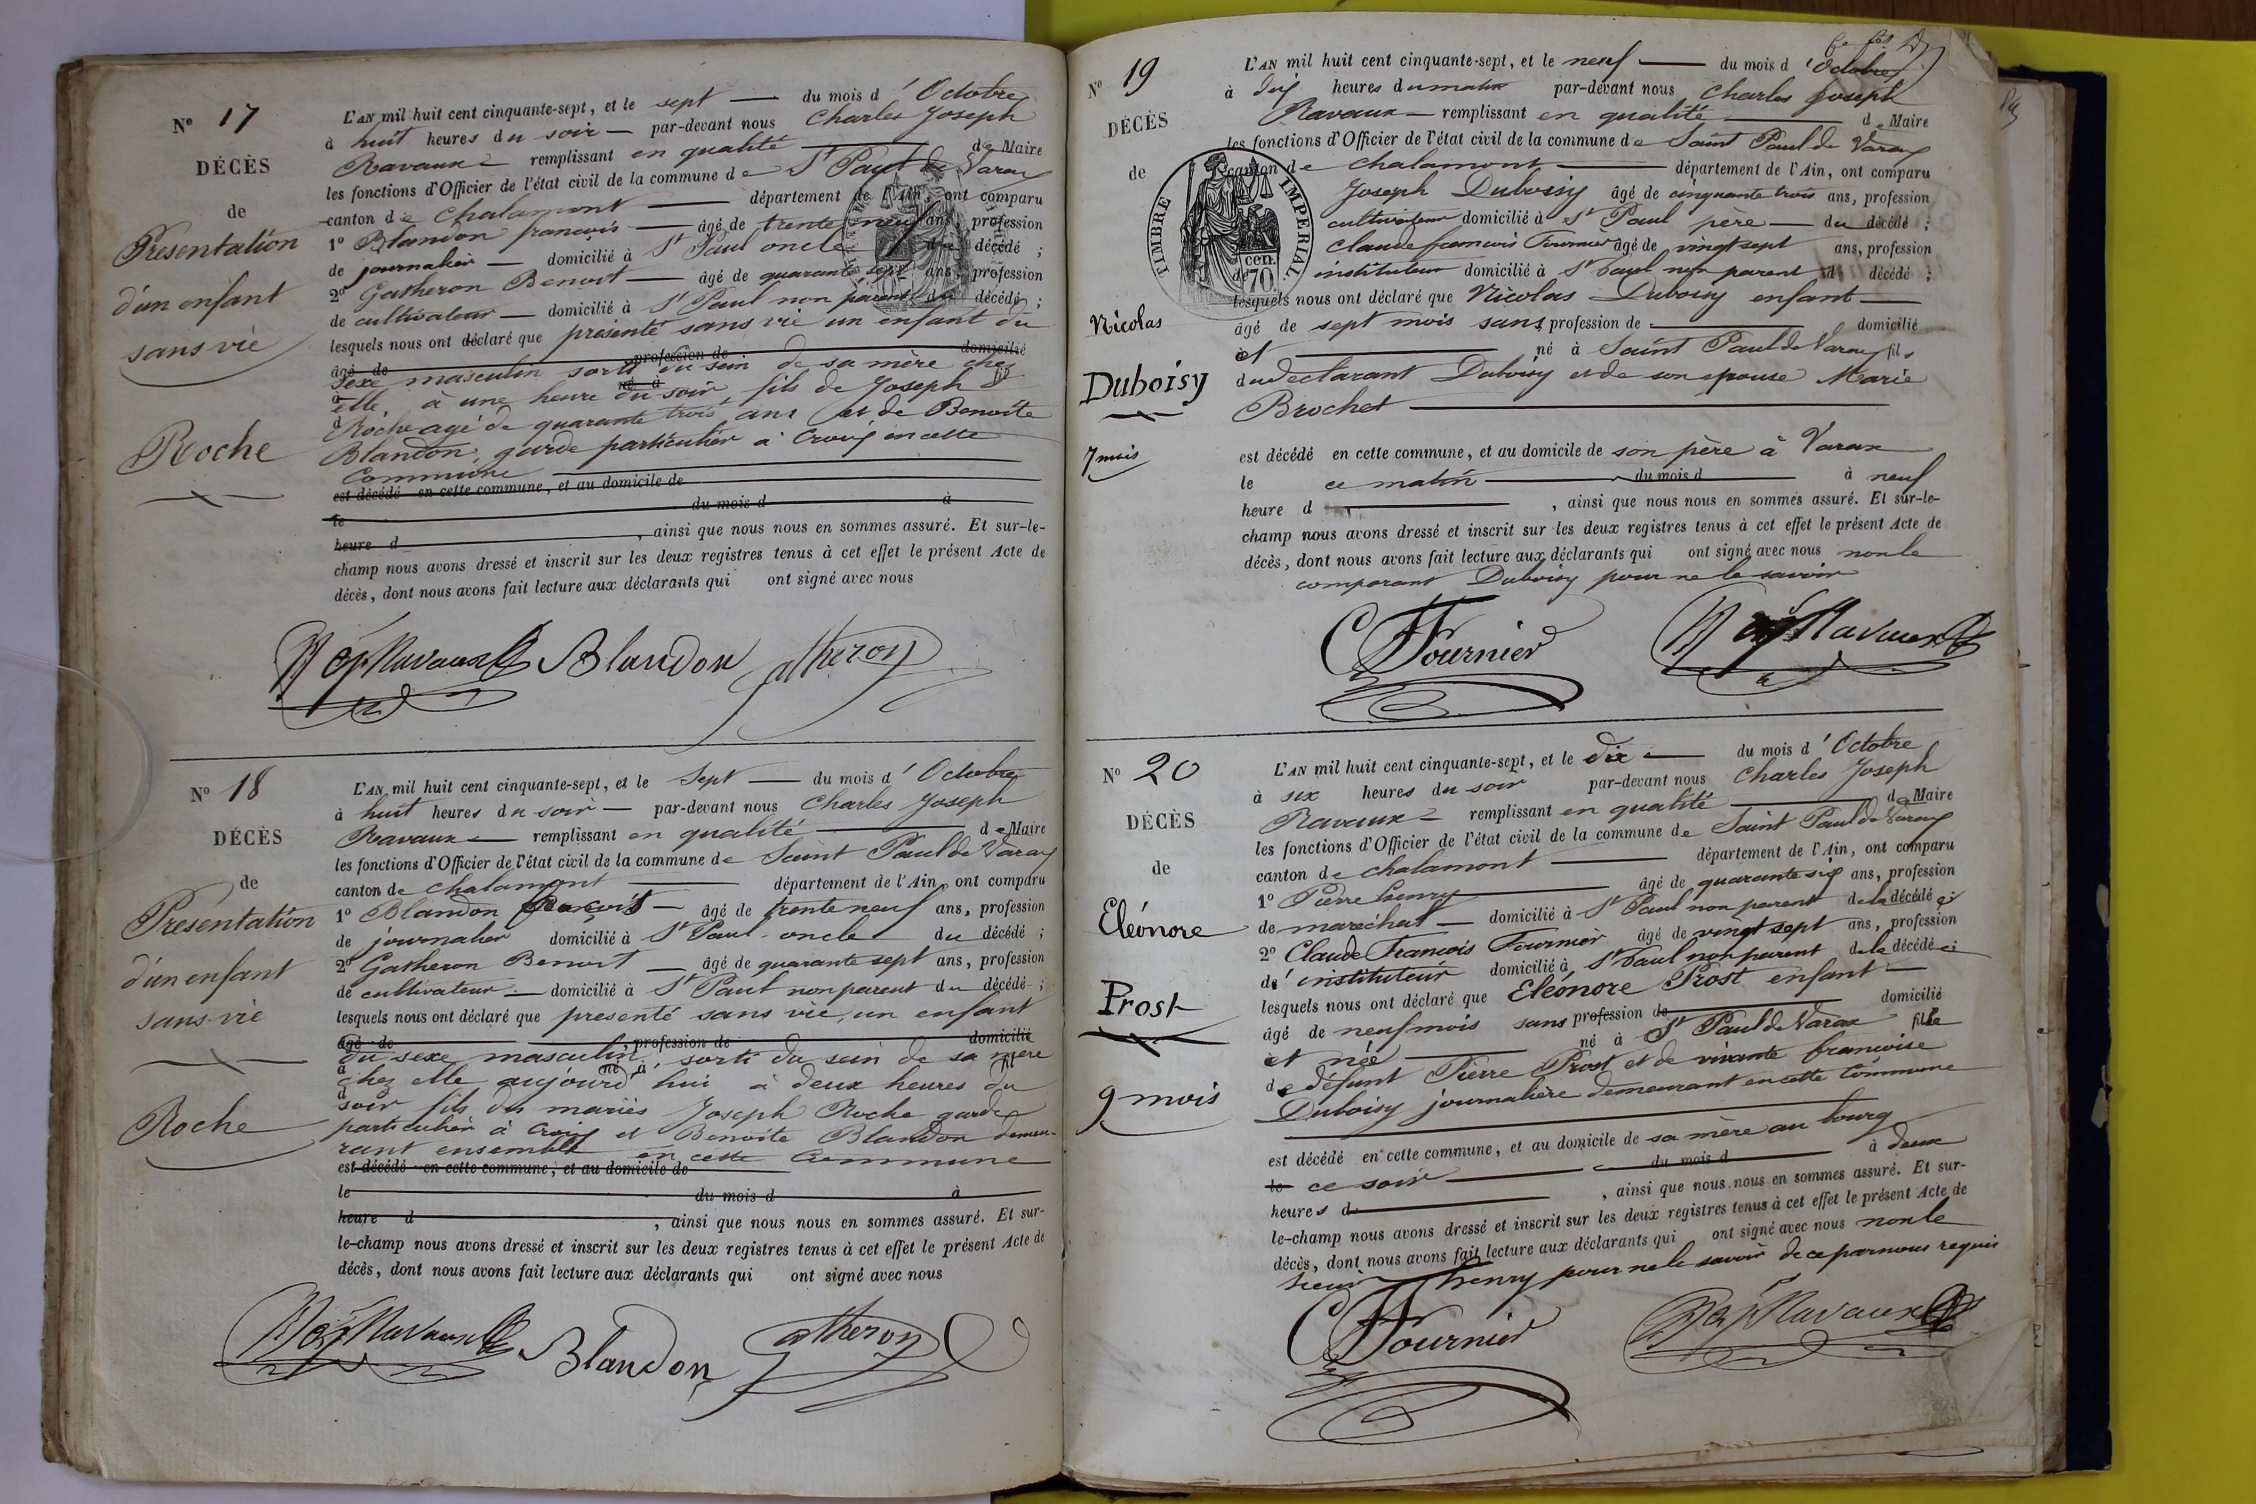 N° 17
DÉCÈS
de
Présentation
d'un enfant
sans vie
Roche
L'AN mil huit cent cinquante-sept, et le sept du mois d'Octobre
à huit heures du soir par-devant nous Charles Joseph
Ravaux remplissant en qualité de Maire
les fonctions d'Officier de l'état civil de la commune de St Paul de Varax
canton de Chalamont département de l'Ain, ont comparu
1° Blandon françois âgé de trente neuf ans, profession
de journalier domicilié à St Paul oncle du décédé ;
2° Gatheron Benoit âgé de quarante sept ans, profession
de cultivateur domicilié à St Paul non parent du décédé ;
lesquels nous ont déclaré que présenté sans vie un enfant du
âgé de profession de domicilié
sexe masculin sorti du sein de sa mère chez
à né à fil
elle, à une heure du soir, fils de Joseph
d
Roche agé de quarante trois ans et de Benoite
Blandon, garde particulier à Croix en cette
Commune
est décédé en cette commune, et au domicile de
le du mois d à
heure d , ainsi que nous nous en sommes assuré. Et sur-le-
champ nous avons dressé et inscrit sur les deux registres tenus à cet effet le présent Acte de
décès, dont nous avons fait lecture aux déclarants qui ont signé avec nous
Ravaux Blandon gatheron
N° 18
DÉCÈS
de
Présentation
d'un enfant
sans vie
Roche
L'AN mil huit cent cinquante-sept, et le Sept du mois d'Octobre
à huit heures du soir par-devant nous Charles Joseph
Ravaux remplissant en qualité de Maire
les fonctions d'Officier de l'état civil de la commune de Saint Paul de Varax
canton de Chalamont département de l'Ain, ont comparu
1° Blandon françois âgé de trente neuf ans, profession
de journalier domicilié à St Paul oncle du décédé ;
2° Gatheron Benoit âgé de quarante sept ans, profession
de cultivateur domicilié à St Paul non parent du décédé ;
lesquels nous ont déclaré que présenté sans vie, un enfant
âgé de , profession de domicilié
du sexe masculin, sorti du sein de sa mère
à né à fil
chez elle aujourd'hui à deux heures du
d
soir fils des mariés Joseph Roche garde
particulier à Croix et Benoite Blandon demeu-
rant ensemble en cette Commune
est décédé en cette commune, et au domicile de
le du mois d à
heure d , ainsi que nous nous en sommes assuré. Et sur-
le-champ nous avons dressé et inscrit sur les deux registres tenus à cet effet le présent Acte de
décès, dont nous avons fait lecture aux déclarants qui ont signé avec nous
Ravaux Blandon gatheron
N° 19
DÉCÈS
de
TIMBRE IMPERIAL
70 cen.
Nicolas
Duboisy
7 mois
L'AN mil huit cent cinquante-sept, et le neuf du mois d'Octobre
à dix heures du matin par-devant nous Charles Joseph
Ravaux remplissant en qualité de Maire
les fonctions d'Officier de l'état civil de la commune de Saint Paul de Varax
canton de Chalamont département de l'Ain, ont comparu
Joseph Duboisy âgé de cinquante trois ans, profession
cultivateur domicilié à St Paul père du décédé ;
Claude françois Fournier âgé de vingt sept ans, profession
de instituteur domicilié à St Paul non parent d décédé ;
lesquels nous ont déclaré que Nicolas Duboisy enfant
âgé de sept mois sans profession de domicilié
et né à Saint Paul de Varax fils
du déclarant Duboisy et de son épouse Marie
Brochet
est décédé en cette commune, et au domicile de son père à Varax
le ce matin du mois d à neuf
heure d , ainsi que nous nous en sommes assuré. Et sur-le-
champ nous avons dressé et inscrit sur les deux registres tenus à cet effet le présent Acte de
décès, dont nous avons fait lecture aux déclarants qui ont signé avec nous non le
comparant Duboisy pour ne le savoir
C F Fournier Ravaux
N° 20
DÉCÈS
de
Eléonore
Prost
9 mois
L'AN mil huit cent cinquante-sept, et le dix du mois d'Octobre
à six heures du soir par-devant nous Charles Joseph
Ravaux remplissant en qualité de Maire
les fonctions d'Officier de l'état civil de la commune de Saint Paul de Varax
canton de Chalamont département de l'Ain, ont comparu
1° Pierre henry âgé de quarante six ans, profession
de maréchal domicilié à St Paul non parent de la décédée ;
2° Claude François Fournier âgé de vingt sept ans, profession
de instituteur domicilié à St Paul non parent de la décédée ;
lesquels nous ont déclaré que Eléonore Prost enfant
âgé de neuf mois sans profession de domicilié
et née né à St Paul de Varax fille
de défunt Pierre Prost et de vivante françoise
Duboisy journalière demeurant en cette Commune
est décédé en cette commune, et au domicile de sa mère au bourg
le ce soir du mois d à deux
heures d , ainsi que nous nous en sommes assuré. Et sur-
le-champ nous avons dressé et inscrit sur les deux registres tenus à cet effet le présent Acte de
décès, dont nous avons fait lecture aux déclarants qui ont signé avec nous non le
sieur henry pour ne le savoir de ce par nous requis
C F Fournier Ravaux